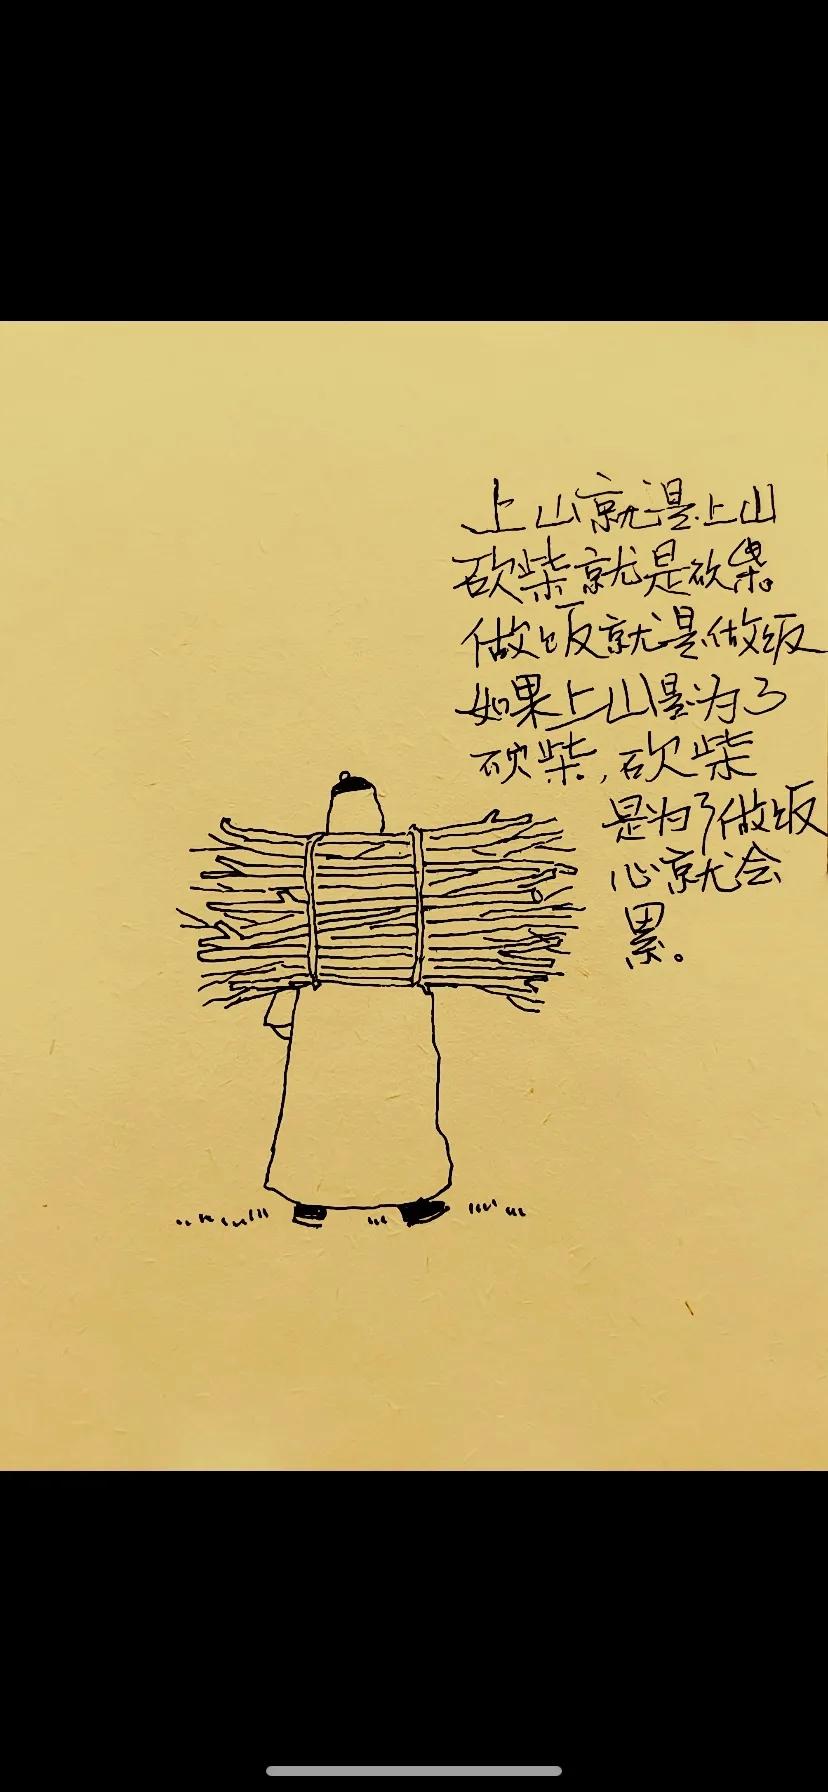 上山就是上山
砍柴就是砍柴。
做饭就是做饭
如果上山是为了
砍柴，砍柴
是为了做饭
心就会
累。